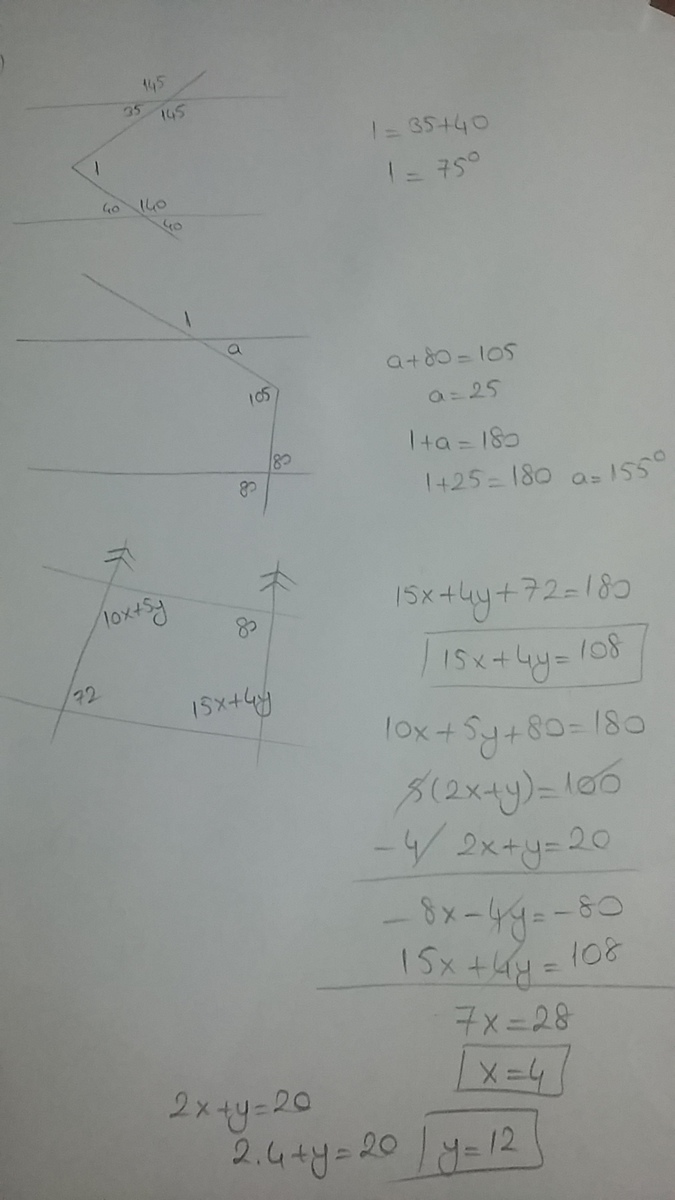 145
35 145
1
40 140
40
1 = 35+40
1 = 75°
1
a
105
80
80
a+80=105
a=25
1+a=180
1+25=180 a=155°
10x+5y
80
72
15x+4y
15x+4y+72=180
15x+4y=108
10x+5y+80=180
5(2x+y)=100
-4/ 2x+y=20
-8x-4y=-80
15x+4y=108
7x=28
x=4
2x+y=20
2.4+y=20 y=12